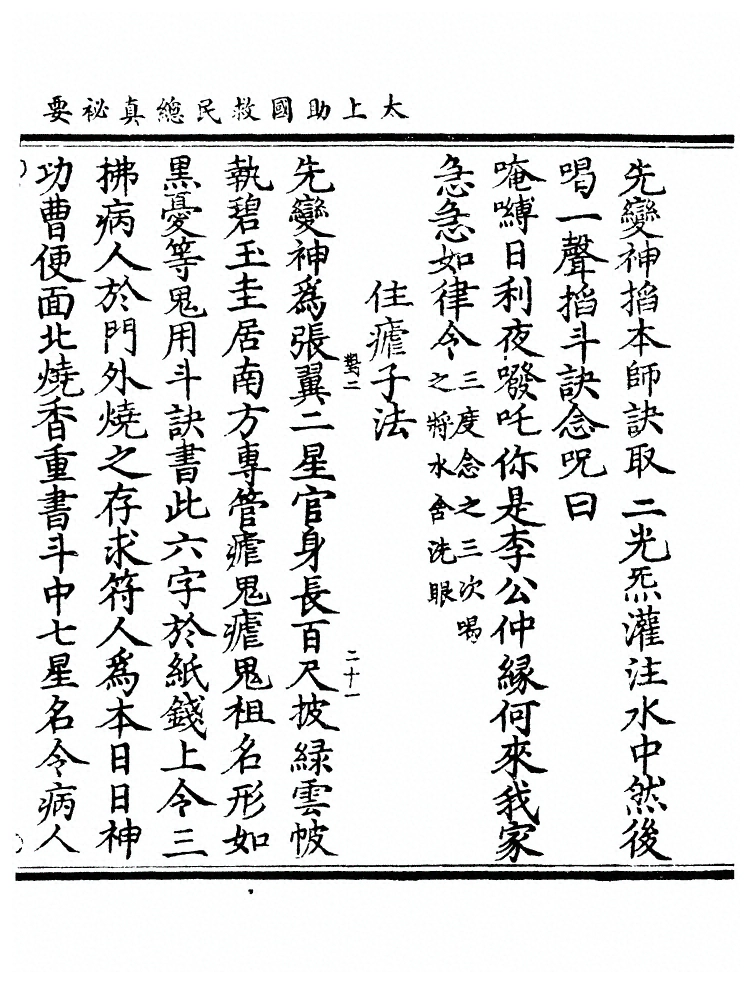 太上助國救民總真祕要
先變神掐本師訣取二光炁灌注水中然後
喝一聲掐斗訣念咒曰
唵嚩日利夜㗶吒你是李公仲緣何來我家
急急如律令三度念之三次噀
之將水令洗眼
住瘧子法
先變神爲張翼二星官身長百尺披綠雲帔
執碧玉圭居南方專管瘧鬼瘧鬼祖名形如
黑憂等鬼用斗訣書此六字於紙錢上令三
拂病人於門外燒之存求符人爲本日日神
功曹便面北燒香重書斗中七星名令病人
對二
二十一